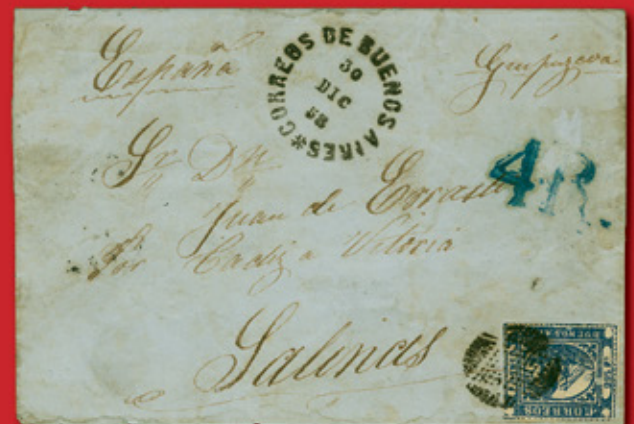 España
CORREOS DE BUENOS AIRES
30
DIC
58
Guipuzcoa
Sr. Dn
4R.
Juan de
Por Cadiz a Vitoria
Salinas
CORREOS